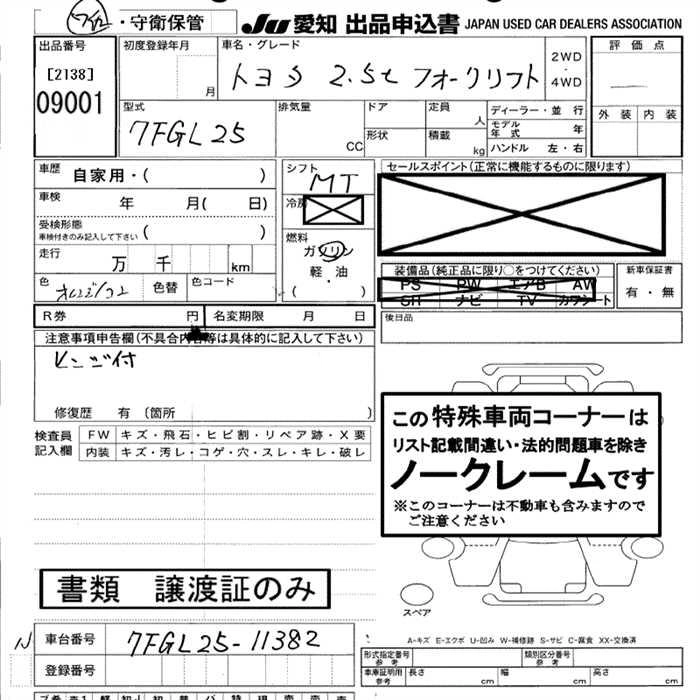 ・守衛保管 JU 愛知 出品申込書 JAPAN USED CAR DEALERS ASSOCIATION
出品番号 初度登録年月 車名・グレード 2WD・4WD 評価点
[2138] 月 トヨタ 2.5t フォークリフト
09001 外装 内装
型式 排気量 ドア 定員 ディーラー・並行
7FGL25 CC 形状 人 モデル年式 年
積載 kg ハンドル 左・右
車歴 自家用・( ) シフト MT セールスポイント(正常に機能するものに限ります)
車検 年 月( 日) 冷房
受検形態 ( )
車検付きのみ記入して下さい
燃料 ガソリン
走行 万 千 km 軽・油 装備品(純正品に限り○をつけてください) 新車保証書
色 色替 色コード ( ) PS PW エアB AW 有・無
SR ナビ TV カワシート
R券 円 名変期限 月 日 後日品
注意事項申告欄(不具合内容等は具体的に記入して下さい)
ヒンジ付
修復歴 有 〔箇所 )
この特殊車両コーナーは
リスト記載間違い・法的問題車を除き
ノークレームです
※このコーナーは不動車も含みますので
ご注意ください
検査員 FW キズ・飛石・ヒビ割・リペア跡・X要
記入欄 内装 キズ・汚レ・コゲ・穴・スレ・キレ・破レ
書類 譲渡証のみ
スペア
A-キズ E-エクボ U-凹み W-補修跡 S-サビ C-腐食 XX-交換済
N 車台番号 7FGL25-11382
登録番号
形式指定番号 参考 類別区分番号 参考
車庫証明用 参考 長さ 幅 高さ